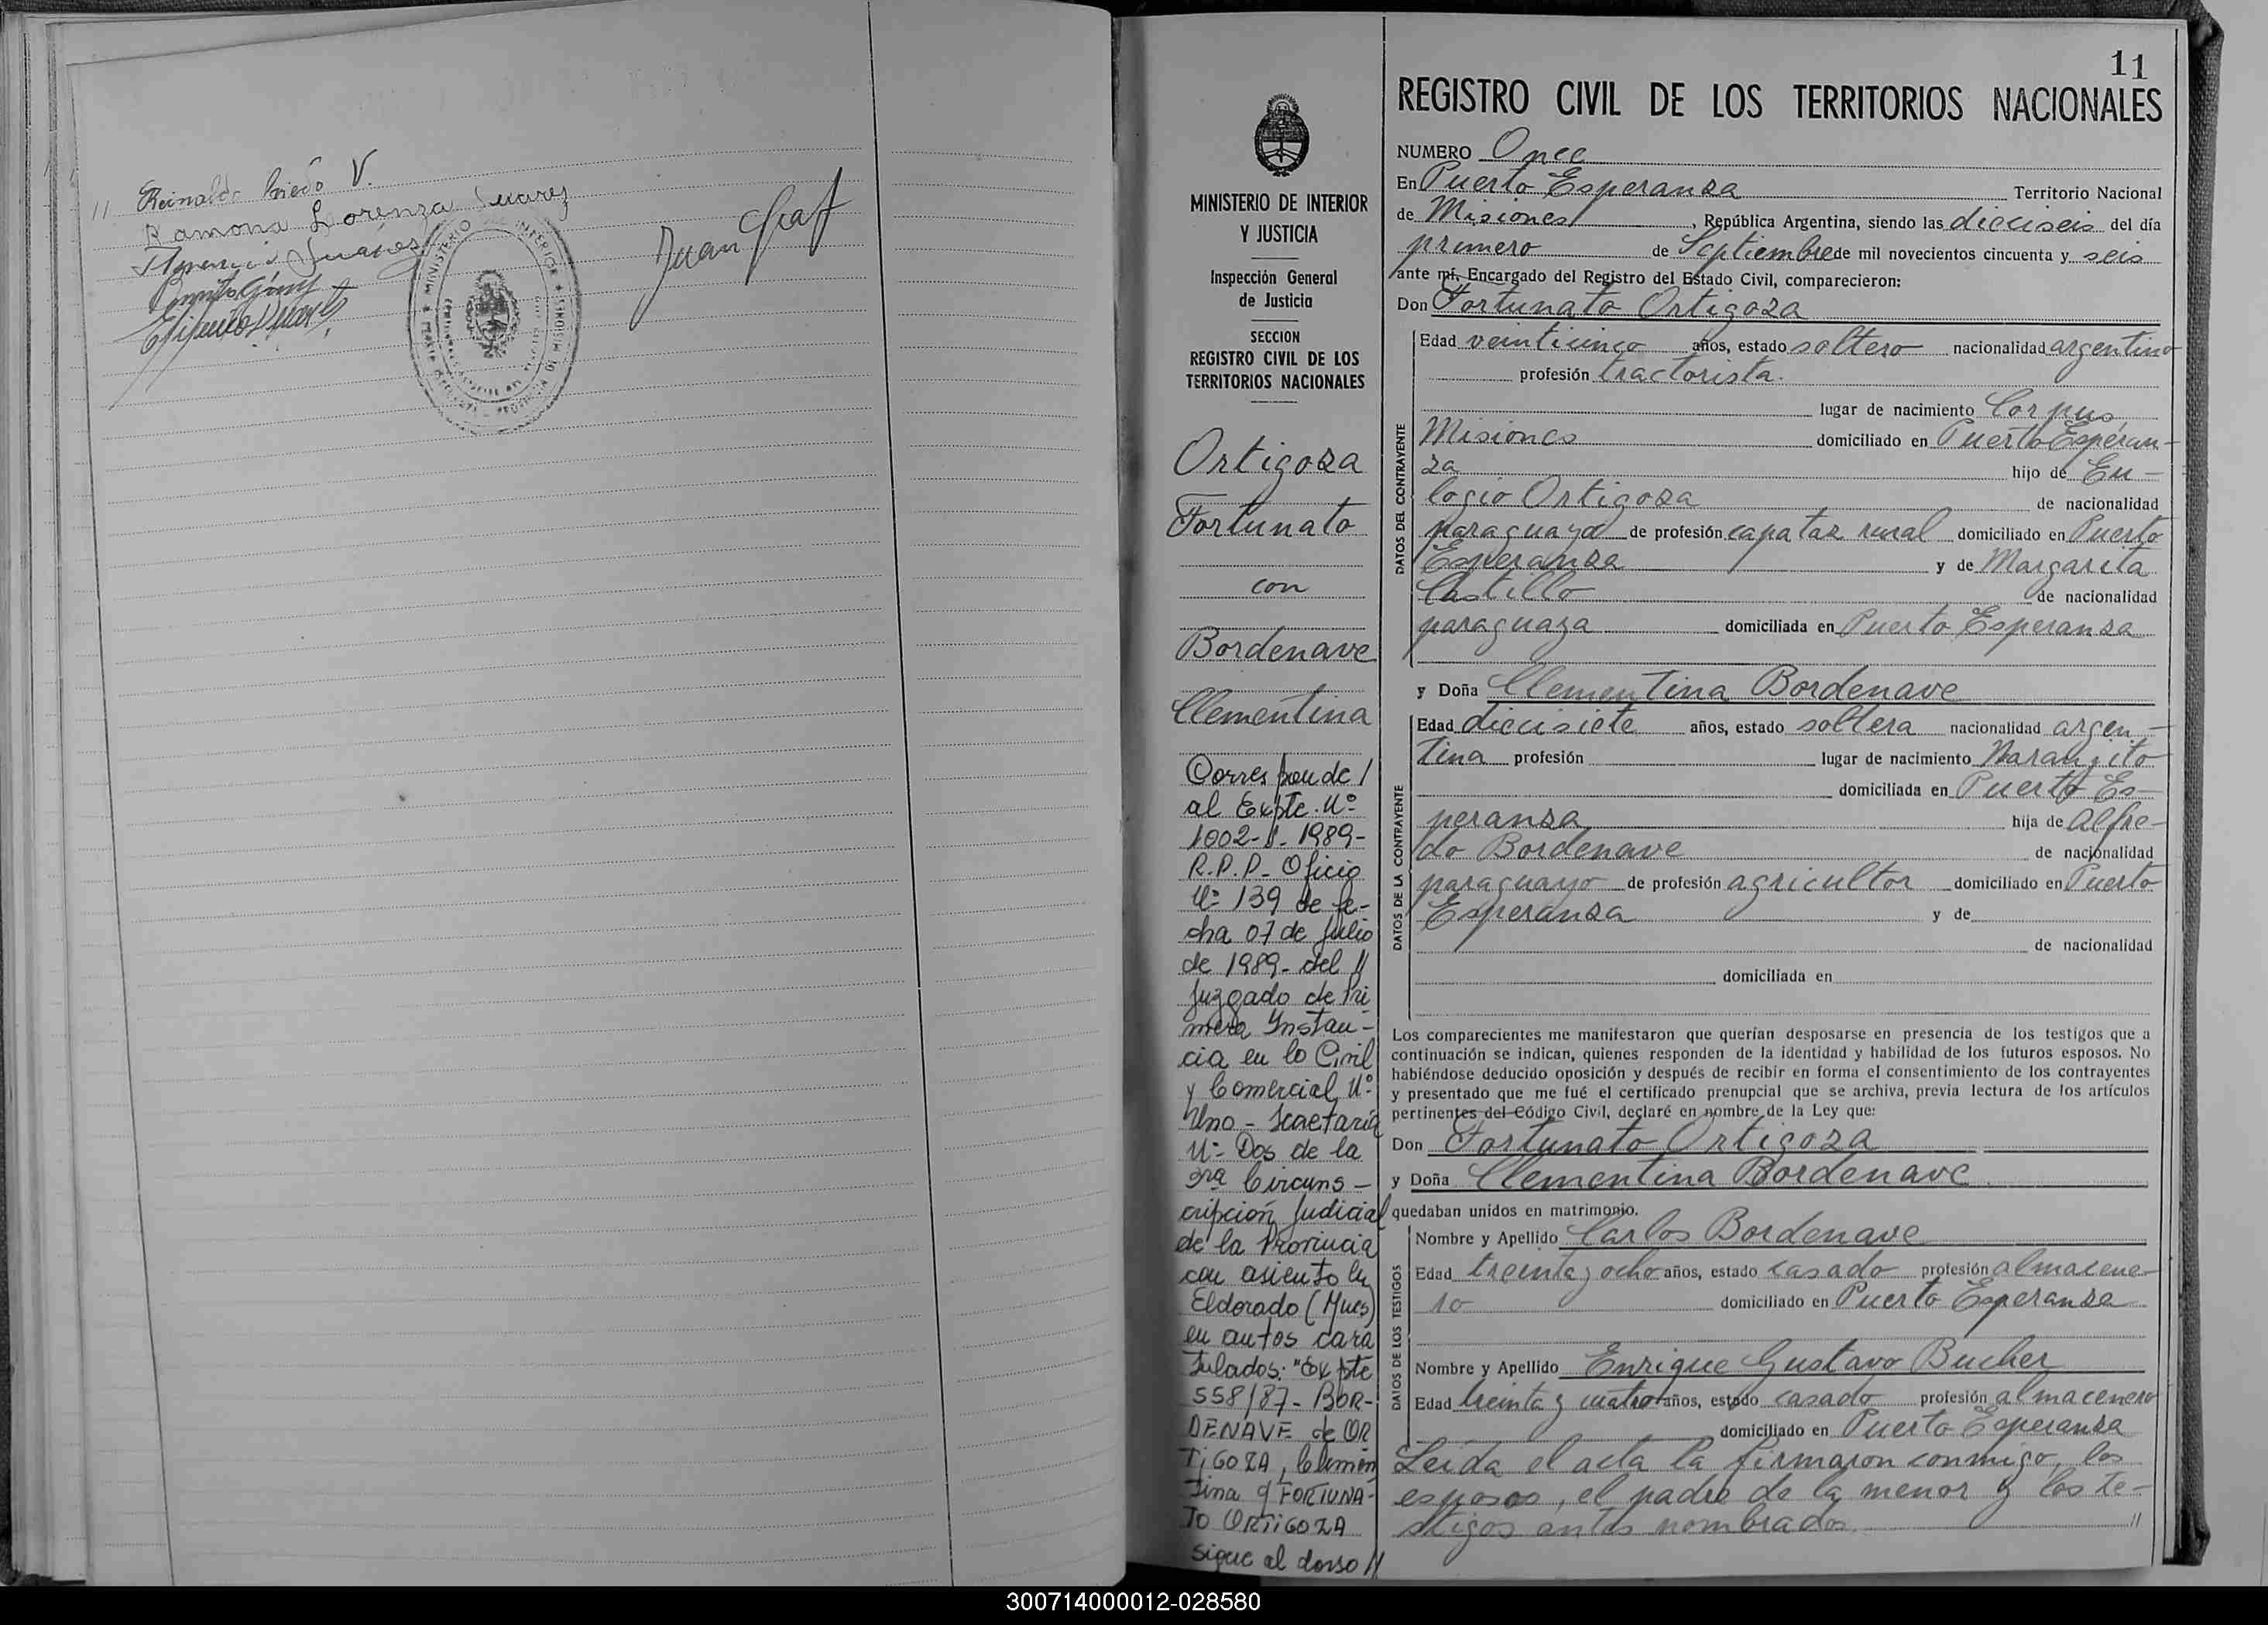 11 Reinaldo V.
Ramona Lorenza Suarez
Suarez
Juan Graf
MINISTERIO DEL INTERIOR
11
REGISTRO CIVIL DE LOS TERRITORIOS NACIONALES
NUMERO Once
En Puerto Esperanza Territorio Nacional
de Misiones, República Argentina, siendo las dieciseis del día
primero de Septiembre de mil novecientos cincuenta y seis
ante mí, Encargado del Registro del Estado Civil, comparecieron:
Don Fortunato Ortigoza
DATOS DEL CONTRAYENTE
Edad veinticinco años, estado soltero nacionalidad argentino
profesión tractorista.
lugar de nacimiento Corpus,
Misiones domiciliado en Puerto Esperan-
za hijo de Eu-
logio Ortigoza de nacionalidad
paraguaya de profesión capataz rural domiciliado en Puerto
Esperanza y de Margarita
Castillo de nacionalidad
paraguaya domiciliada en Puerto Esperanza
y Doña Clementina Bordenave
DATOS DE LA CONTRAYENTE
Edad diecisiete años, estado soltera nacionalidad argen-
tina profesión lugar de nacimiento Naranjito
domiciliada en Puerto Es-
peranza hija de Alfre-
do Bordenave de nacionalidad
paraguayo de profesión agricultor domiciliado en Puerto
Esperanza y de
de nacionalidad
domiciliada en
Los comparecientes me manifestaron que querían desposarse en presencia de los testigos que a
continuación se indican, quienes responden de la identidad y habilidad de los futuros esposos. No
habiéndose deducido oposición y después de recibir en forma el consentimiento de los contrayentes
y presentado que me fué el certificado prenupcial que se archiva, previa lectura de los artículos
pertinentes del Código Civil, declaré en nombre de la Ley que:
Don Fortunato Ortigoza
y Doña Clementina Bordenave
quedaban unidos en matrimonio.
DATOS DE LOS TESTIGOS
Nombre y Apellido Carlos Bordenave
Edad treinta y ocho años, estado casado profesión almacene-
ro domiciliado en Puerto Esperanza
Nombre y Apellido Enrique Gustavo Bucher
Edad treinta y cuatro años, estado casado profesión almacenero
domiciliado en Puerto Esperanza
Leida el acta la firmaron conmigo, los
esposos, el padre de la menor y los te-
stigos antes nombrados. //
MINISTERIO DE INTERIOR
Y JUSTICIA
Inspección General
de Justicia
SECCION
REGISTRO CIVIL DE LOS
TERRITORIOS NACIONALES
Ortigoza
Fortunato
con
Bordenave
Clementina
Corresponde /
al Expte. Nº
1002- - 1989-
R.P.P. - Oficio
Nº 139 de fe-
cha 07 de Julio
de 1989- del //
Juzgado de Pri
mera Instan-
cia en lo Civil
y Comercial Nº
Uno - Secretaría
Nº Dos de la
3ra Circuns-
cripción Judicial
de la Provincia
con asiento en
Eldorado (Mnes)
en autos cara
tulados: "Expte
558/87- BOR-
DENAVE de OR
TIGOZA, Clemen
tina c/ FORTUNA-
TO ORTIGOZA
sigue al dorso //
300714000012-028580